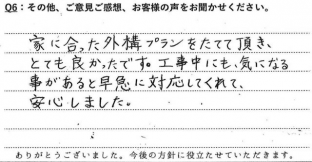 Q6：その他、ご意見ご感想、お客様の声をお聞かせください。
家に合った外構プランをたてて頂き、
とても良かったです。工事中にも、気になる
事があると早急に対応してくれて、
安心しました。
ありがとうございました。今後の方針に役立たせていただきます。